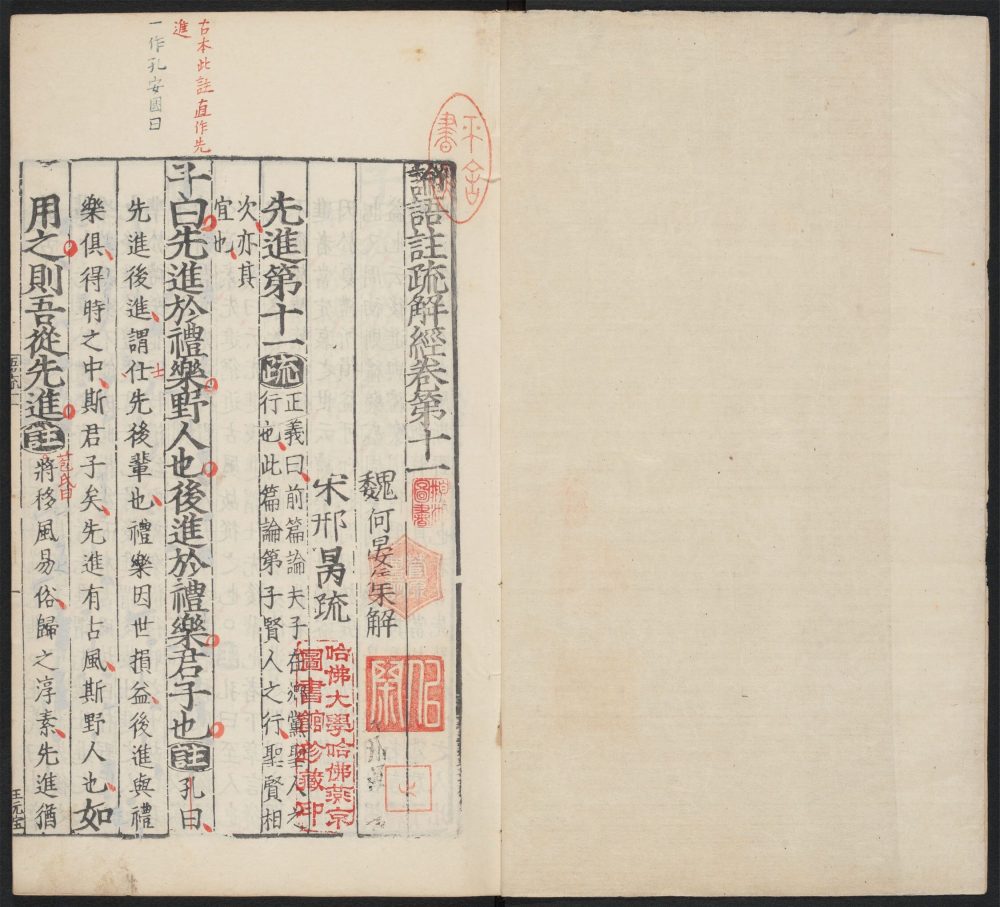 論語註疏解經卷第十一
魏何晏集解
宋邢昺疏
先進第十一疏正義曰前篇論夫子在鄉黨聖人之
行也此篇論第子賢人之行聖賢相
次亦其
宜也
子曰先進於禮樂野人也後進於禮樂君子也註孔曰
先進後進謂仕先後輩也禮樂因世損益後進與禮
樂俱得時之中斯君子矣先進有古風斯野人也如
用之則吾從先進註將移風易俗歸之淳素先進猶
古本此註直作先
進
一作孔安國曰
士
苞氏曰
王元宝
哈佛大學哈佛燕京
圖書館珍藏印